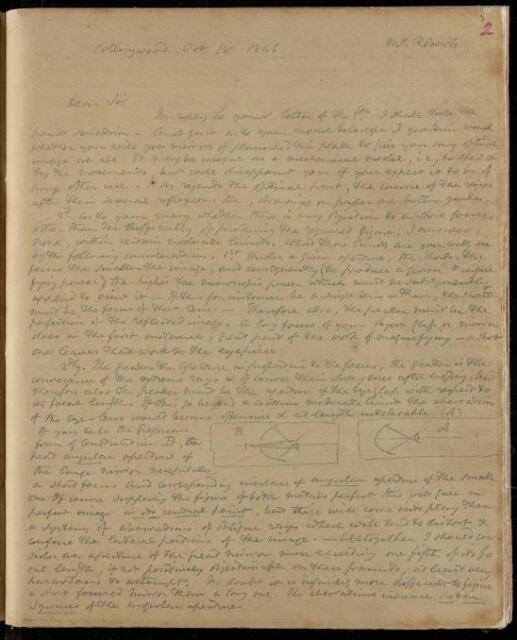 2
Collingwood Oct 18 1846
Dear Sir
In reply to your letter of the 5th I shall take the
points seriatim – And first as to your model telescope I question much
whether you will get mirrors of planished tin plate to give you any optical
image at all. It may be useful as a mechanical model, i.e. to
try the movements, but will disappoint you if you expect it to be of
any other use. – As regards the optical part, the course of the rays
after their several reflexions &c, drawings on paper are better guides.
2d as to your query whether there is any objection to a short focus,
other than the difficulty of producing the required figure, I answer,
None, within certain moderate limits. What those limits are you will see
by the following considerations. 1st Under a given aperture, the shorter the
focus the smaller the image, and consequently (to produce a given magni-
fying power) the higher the microscopic power which must be subsequently
applied to view it – If this for instance be a single lens – then, the shorter
must be the focus of that lens. – Therefore also, the greater must be the
perfection of the reflected image. A long focus of your object glass or mirror
does in the first instance, great part of the work of magnifying – a short
one leaves that work to the eyepiece
2dly. The greater the aperture in proportion to the focus, the greater is the
convergence of the extreme rays & of course their divergence after
therefore also the greater must be the aperture of the eye glass with respect to
its focal length. If this go beyond a certain moderate limit the aberration
of the eye-lens would become offensive & at length intolerable. (A)
If you take the Gregorian
form of construction B, the
great angular aperture of
the large mirror necessitates
a short focus and corresponding increase of angular aperture of the small
one Of course supposing the figure of both mirrors perfect this will give a
perfect image in its central point, but there will come into play then
a system of aberrations of oblique rays which will tend to distort &
confuse the lateral portions of the image. – Altogether I should con-
sider an aperture of the great mirror more exceeding one fifth of its fo
cal length, if not positively objectionable on these grounds, at least very
hazardous to attempt. No doubt it is infinitely more difficult to figure
a short focused mirror than a long one. The aberrations increase as the
squares of the angular apertures
B
A